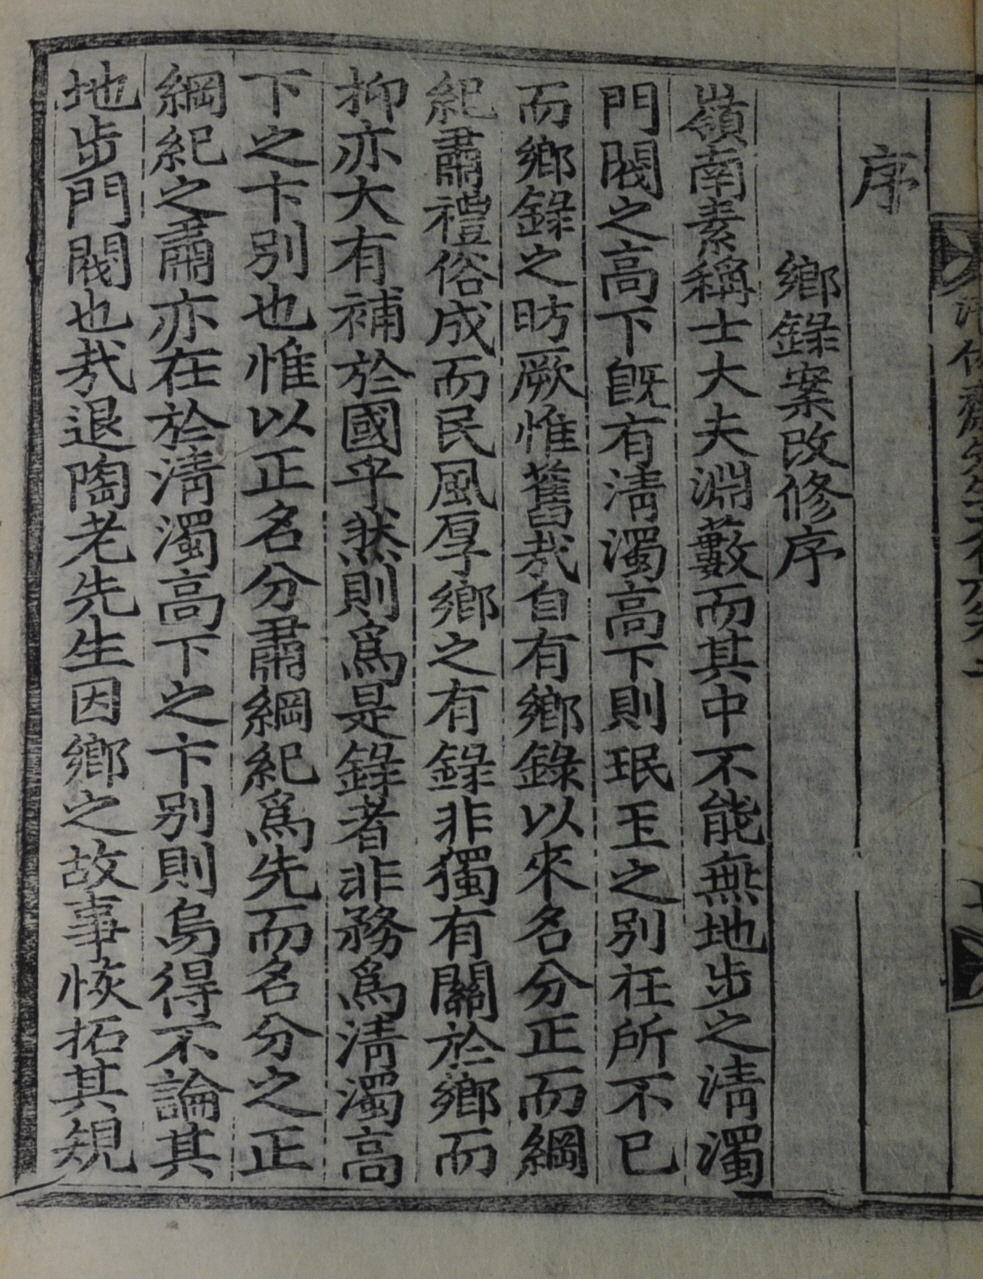 序
鄕錄案改修序
嶺南素稱士大夫淵藪而其中不能無地步之淸濁
門閥之高下旣有淸濁高下則珉玉之別在所不已
而鄕錄之昉厥惟舊哉自有鄕錄以來名分正而綱
紀肅禮俗成而民風厚鄕之有錄非獨有關於鄕而
抑亦大有補於國乎然則爲是錄者非務爲淸濁高
下之卞別也惟以正名分肅綱紀爲先而名分之正
綱紀之肅亦在於淸濁高下之卞別則烏得不論其
地步門閥也哉退陶老先生因鄕之故事恢拓其規